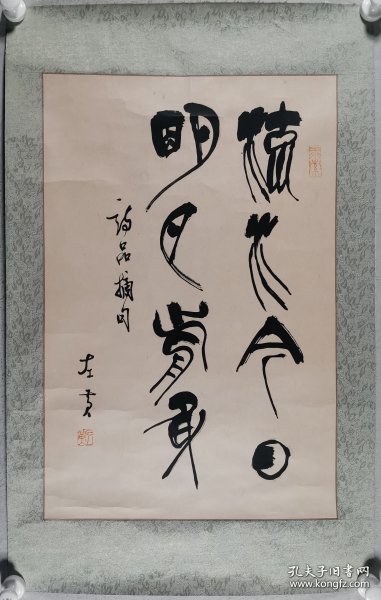 流水今日
明月前身
诗品摘句
孔夫子旧书网
www.kongfz.com